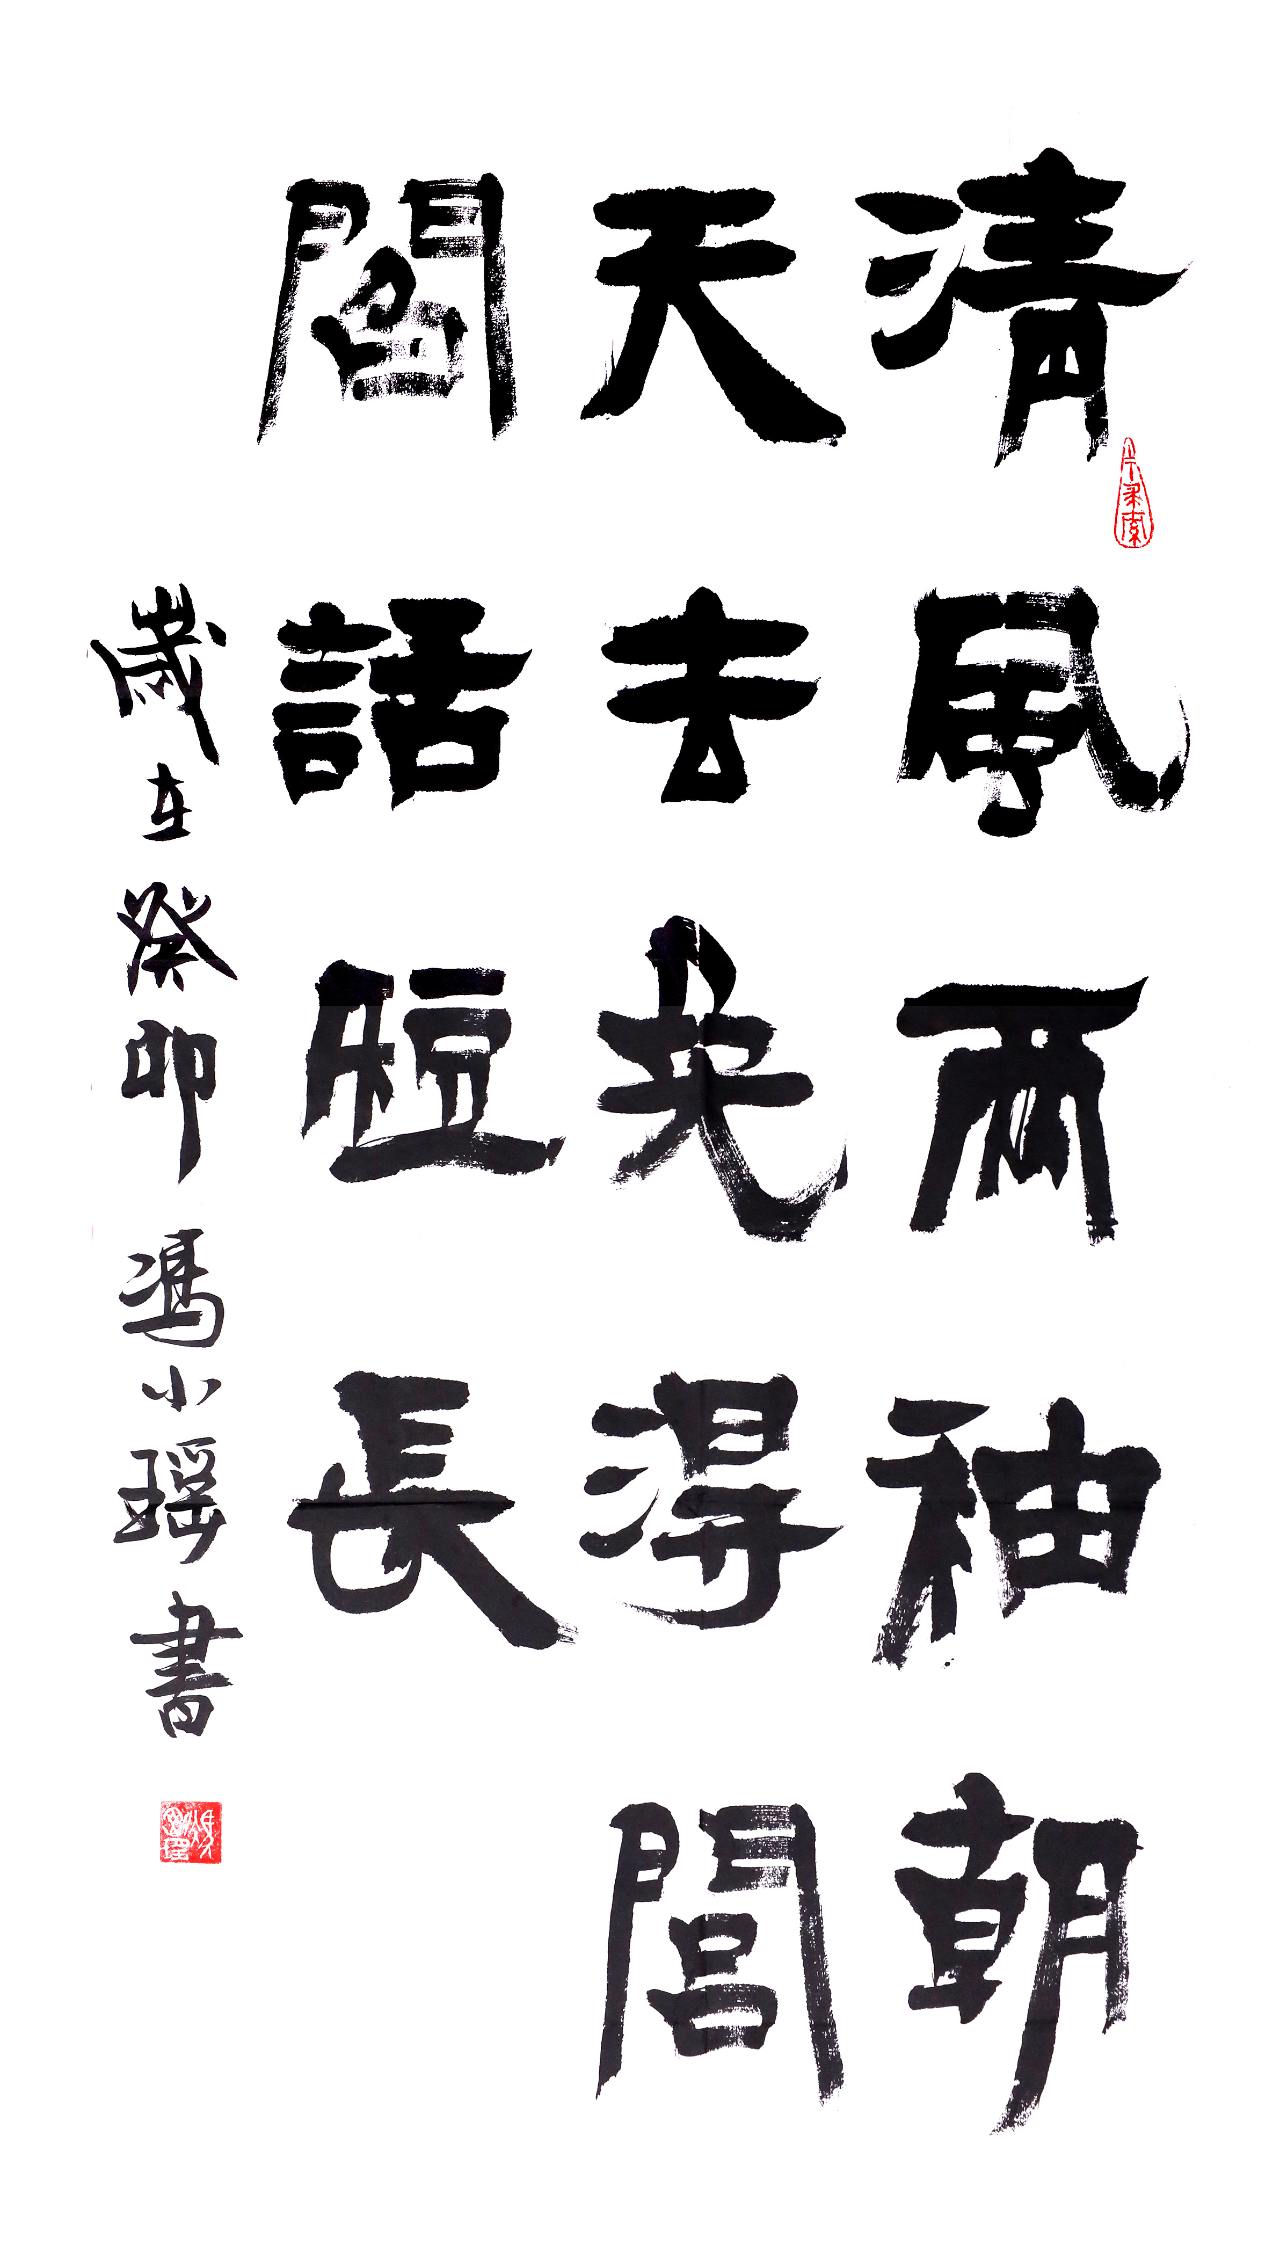 清風兩袖朝
天去免得閭
閻話短長
歲在癸卯馮小瑶書